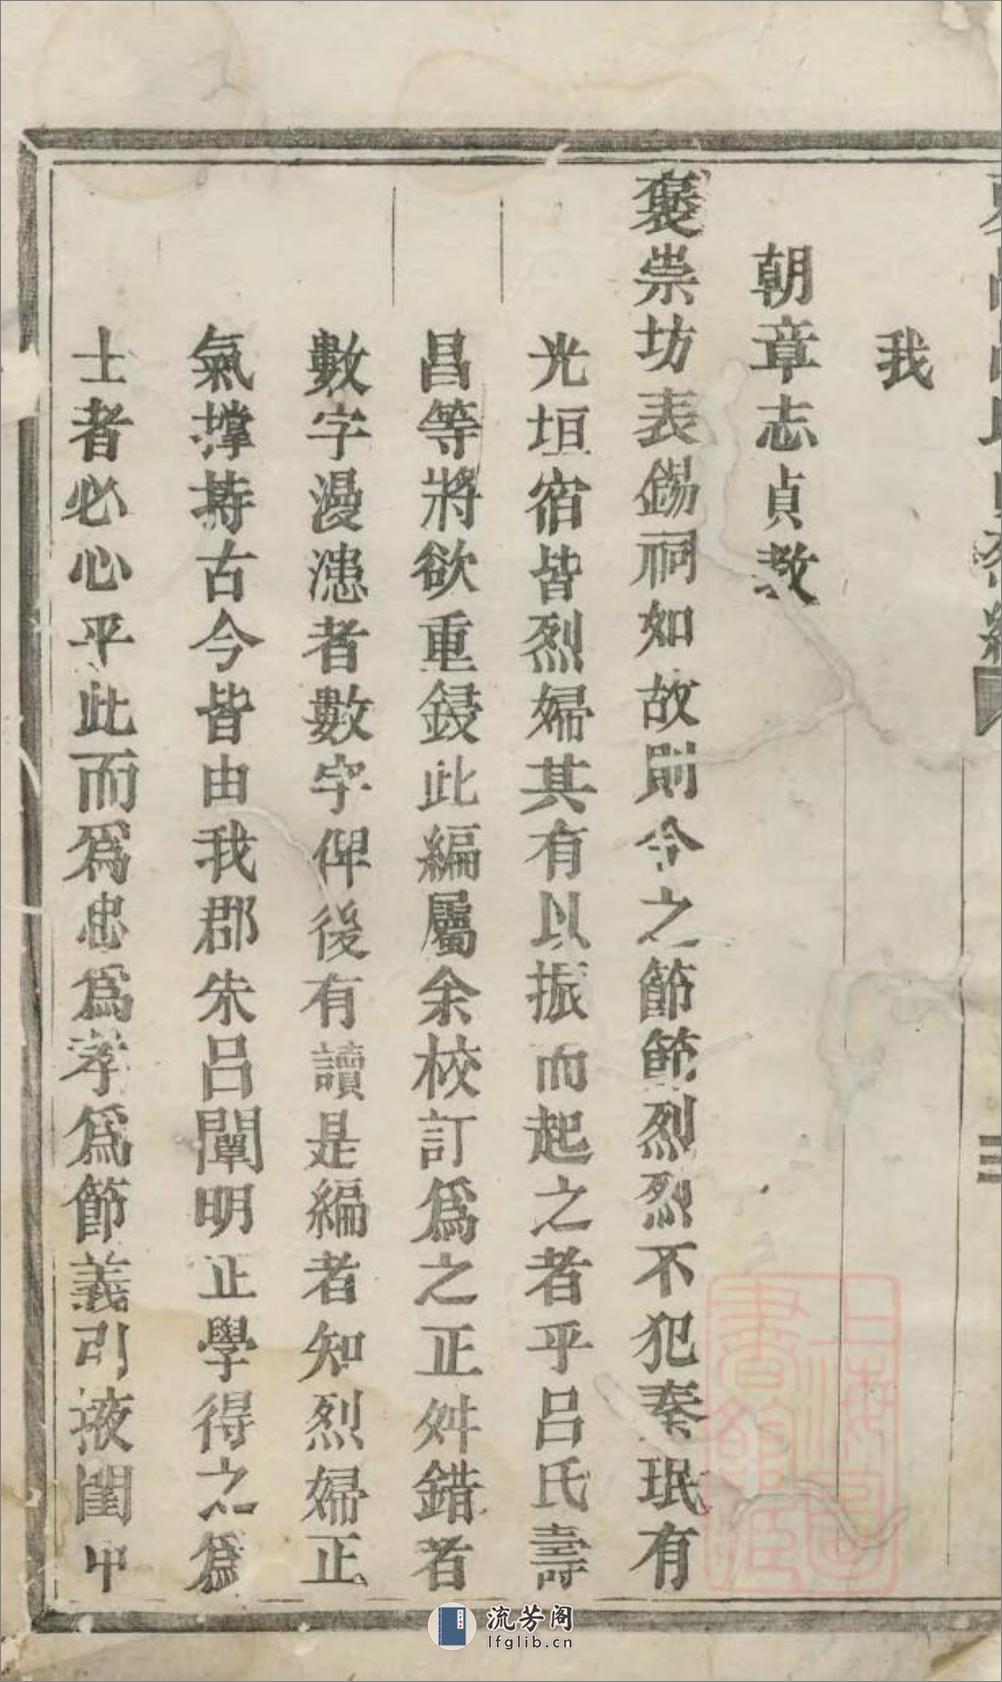 我
朝章志貞教
褒崇坊表錫祠如故則今之節節烈烈不犯秦珉有
光垣宿皆烈婦其有以振而起之者乎呂氏壽
昌等將欲重鋟此編屬余校訂爲之正舛錯者
數字漫漶者數字俾後有讀是編者知烈婦正
氣撐持古今皆由我郡朱呂闡明正學得之爲
士者必心平此而爲忠爲孝爲節義引掖閨中
上海圖書館藏
流芳阁
lfglib.cn